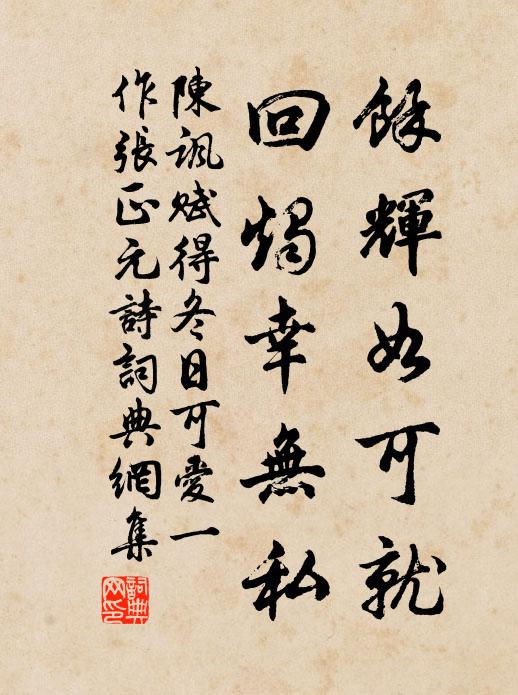 餘輝如可就
回燭幸無私
陳諷賦得冬日可愛一
作張正元詩詞典網集
詞典
网印